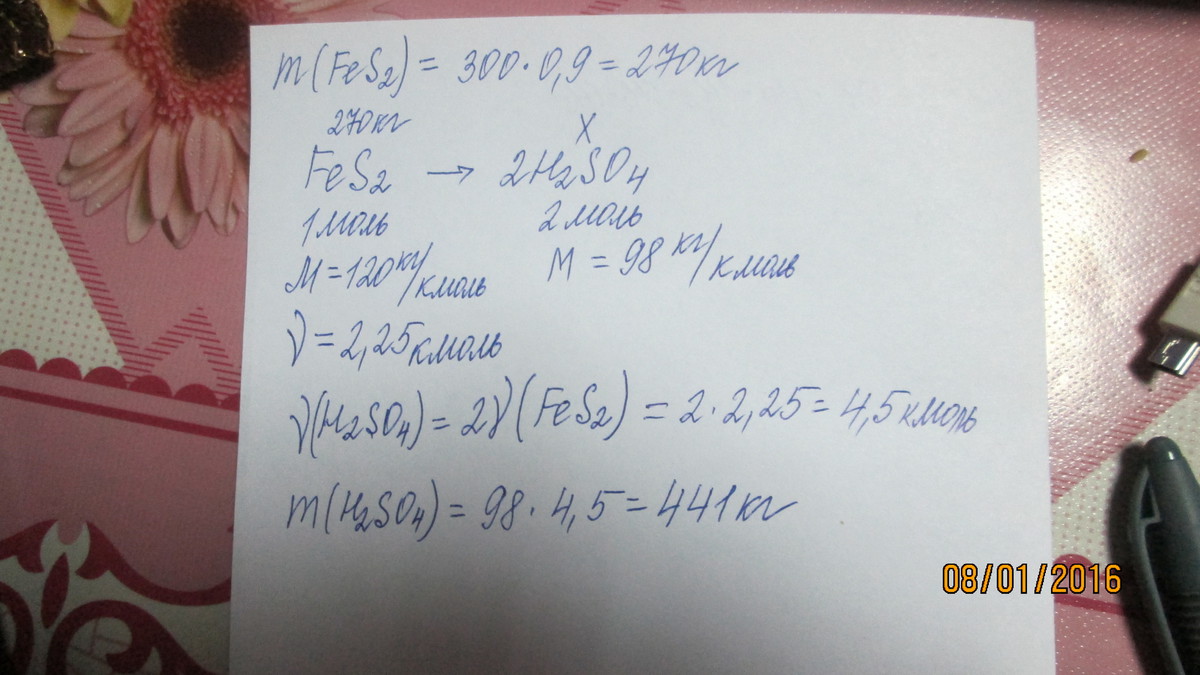 m(FeS2) = 300·0,9 = 270кг
270кг X
FeS2 → 2H2SO4
1моль 2моль
M=120кг/кмоль M = 98 кг/кмоль
ν = 2,25кмоль
ν(H2SO4) = 2ν(FeS2) = 2·2,25 = 4,5кмоль
m(H2SO4) = 98·4,5 = 441кг
08/01/2016